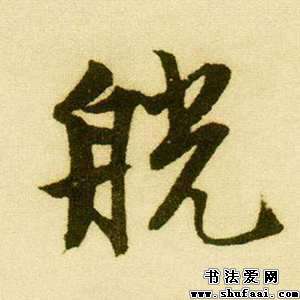 觥
书法爱网
www.shufaai.com